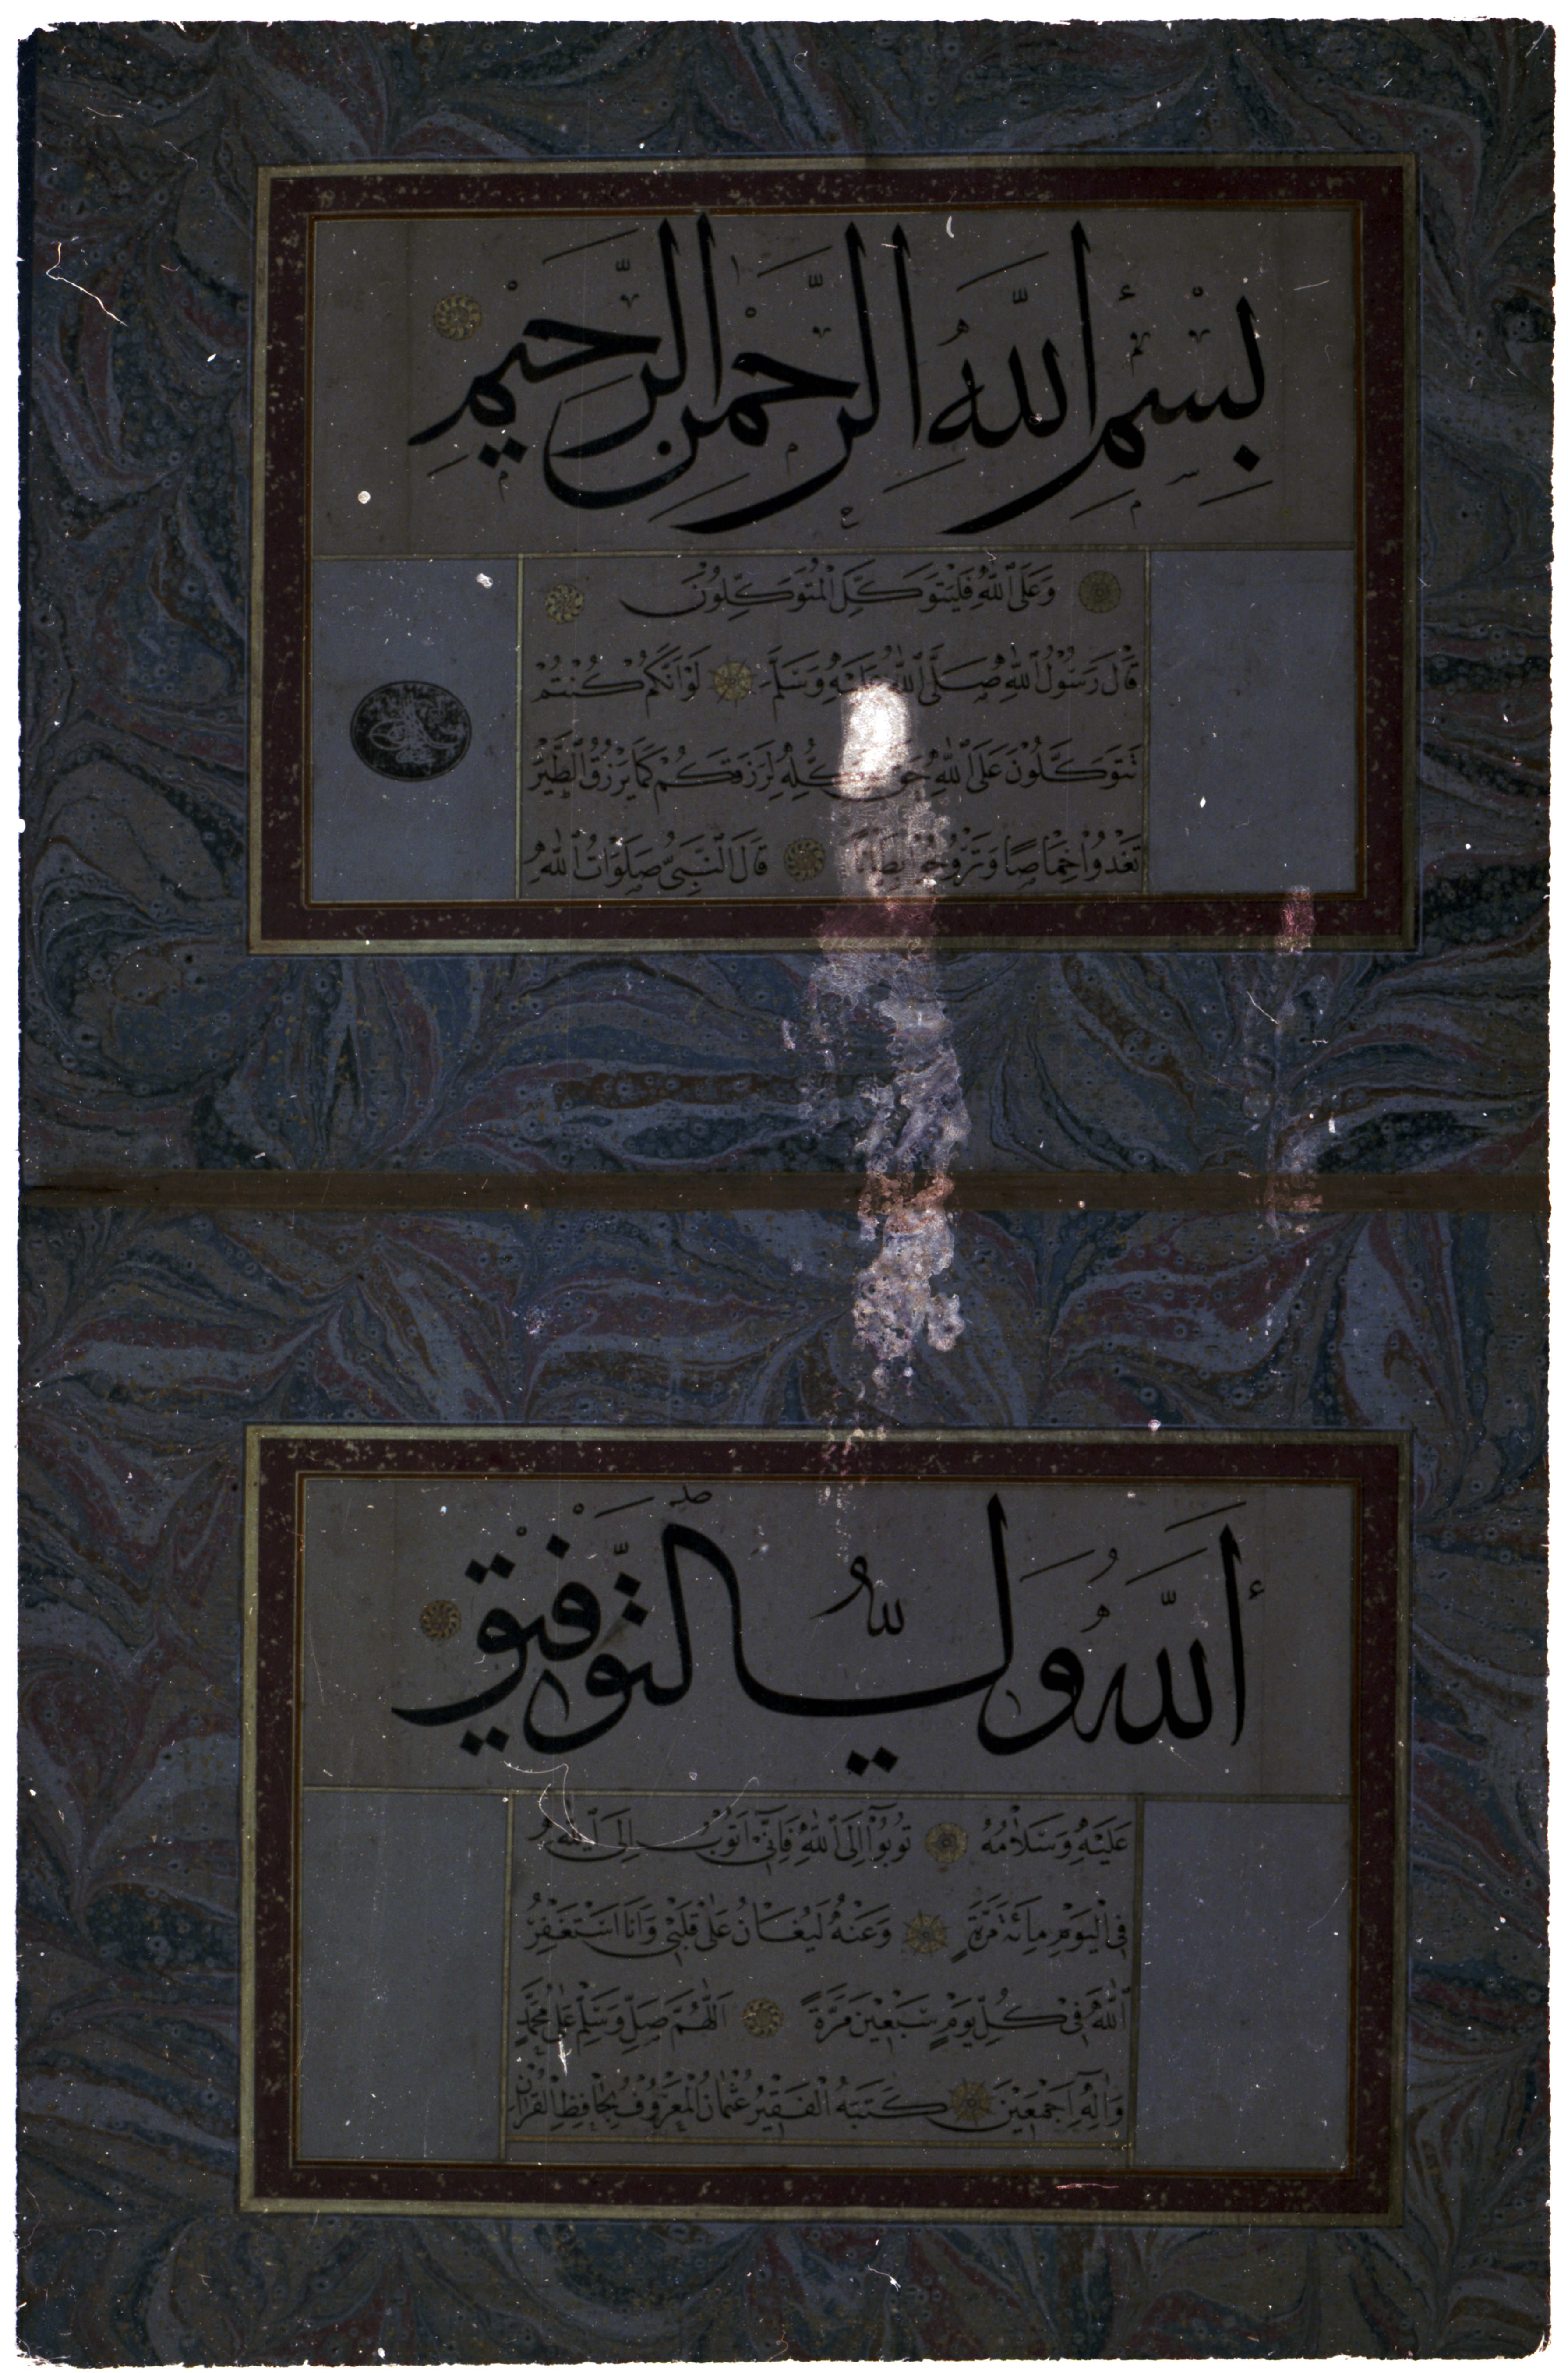 بِسْمِ اللَّهِ الرَّحْمٰنِ الرَّحِيمِ
وَعَلَى اللّٰهِ فَلْيَتَوَكَّلِ الْمُتَوَكِّلُونَ
قَالَ رَسُولُ اللّٰهِ صَلَّى اللّٰهُ عَلَيْهِ وَسَلَّمَ لَوْ اَنَّكُمْ كُنْتُمْ
تَتَوَكَّلُونَ عَلَى اللّٰهِ حَقَّ تَوَكُّلِهِ لَرَزَقَكُمْ كَمَا يَرْزُقُ الطَّيْرَ
تَغْدُوا خِمَاصًا وَتَرُوحُ بِطَانًا قَالَ النَّبِيُّ صَلَوَاتُ اللّٰهِ
أَللّٰهُ وَلِيُّ التَّوْفِيقِ
عَلَيْهِ وَسَلَامُهُ تُوبُوا اِلَى اللّٰهِ فَاِنِّي اَتُوبُ اِلَى اللّٰهِ
فِي الْيَوْمِ مِائَةَ مَرَّةٍ وَعَنْهُ لَيُغَانُ عَلٰى قَلْبِي وَاَنَا اَسْتَغْفِرُ
اللّٰهَ فِي كُلِّ يَوْمٍ سَبْعِينَ مَرَّةً اَللّٰهُمَّ صَلِّ وَسَلِّمْ عَلٰى مُحَمَّدٍ
وَاٰلِهِ اَجْمَعِينَ كَتَبَهُ الْفَقِيرُ عُثْمَانُ الْمَعْرُوفُ بِحَافِظِ الْقُرْاٰنِ